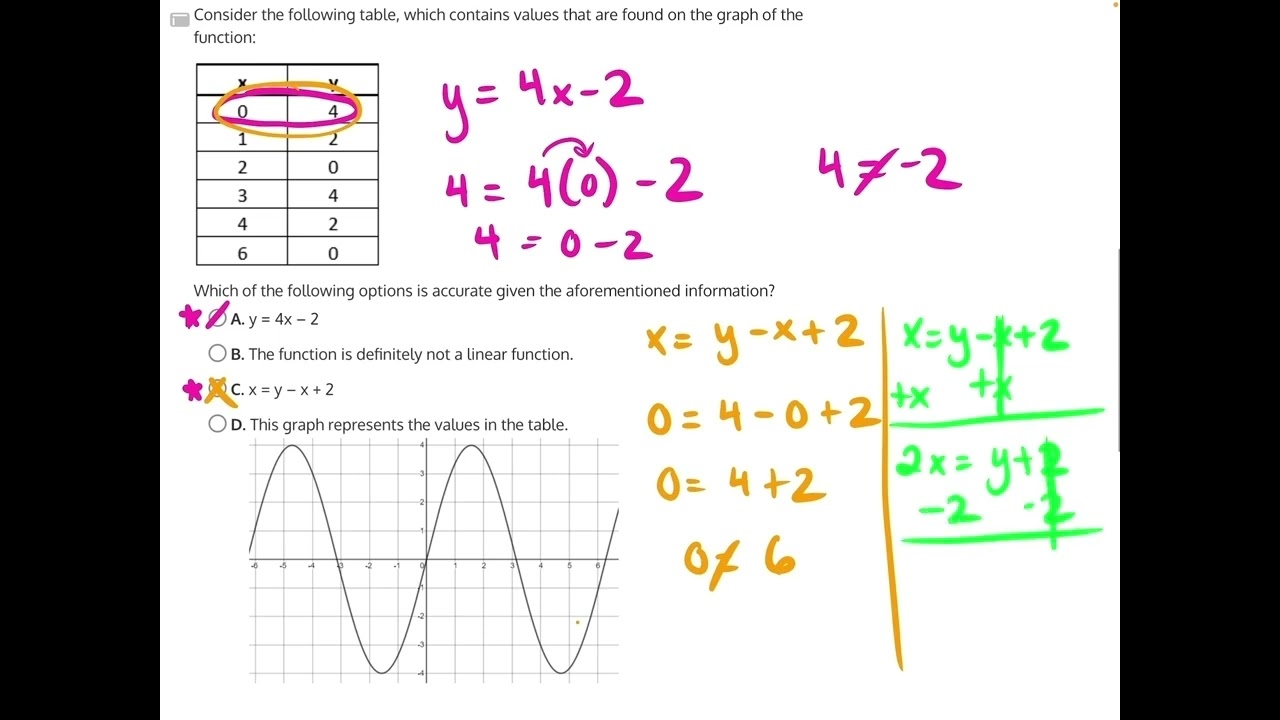 Consider the following table, which contains values that are found on the graph of the
function:
x y
0 4
1 2
2 0
3 4
4 2
6 0
y = 4x - 2
4 = 4(0) - 2
4 = 0 - 2
4 ≠ -2
Which of the following options is accurate given the aforementioned information?
A. y = 4x − 2
B. The function is definitely not a linear function.
C. x = y − x + 2
D. This graph represents the values in the table.
4
3
2
1
-6 -5 -4 -3 -2 0 1 2 3 4 5 6
-1
-2
-3
-4
x = y - x + 2
0 = 4 - 0 + 2
0 = 4 + 2
0 ≠ 6
x = y - x + 2
+x +x
2x = y + 2
-2 -2